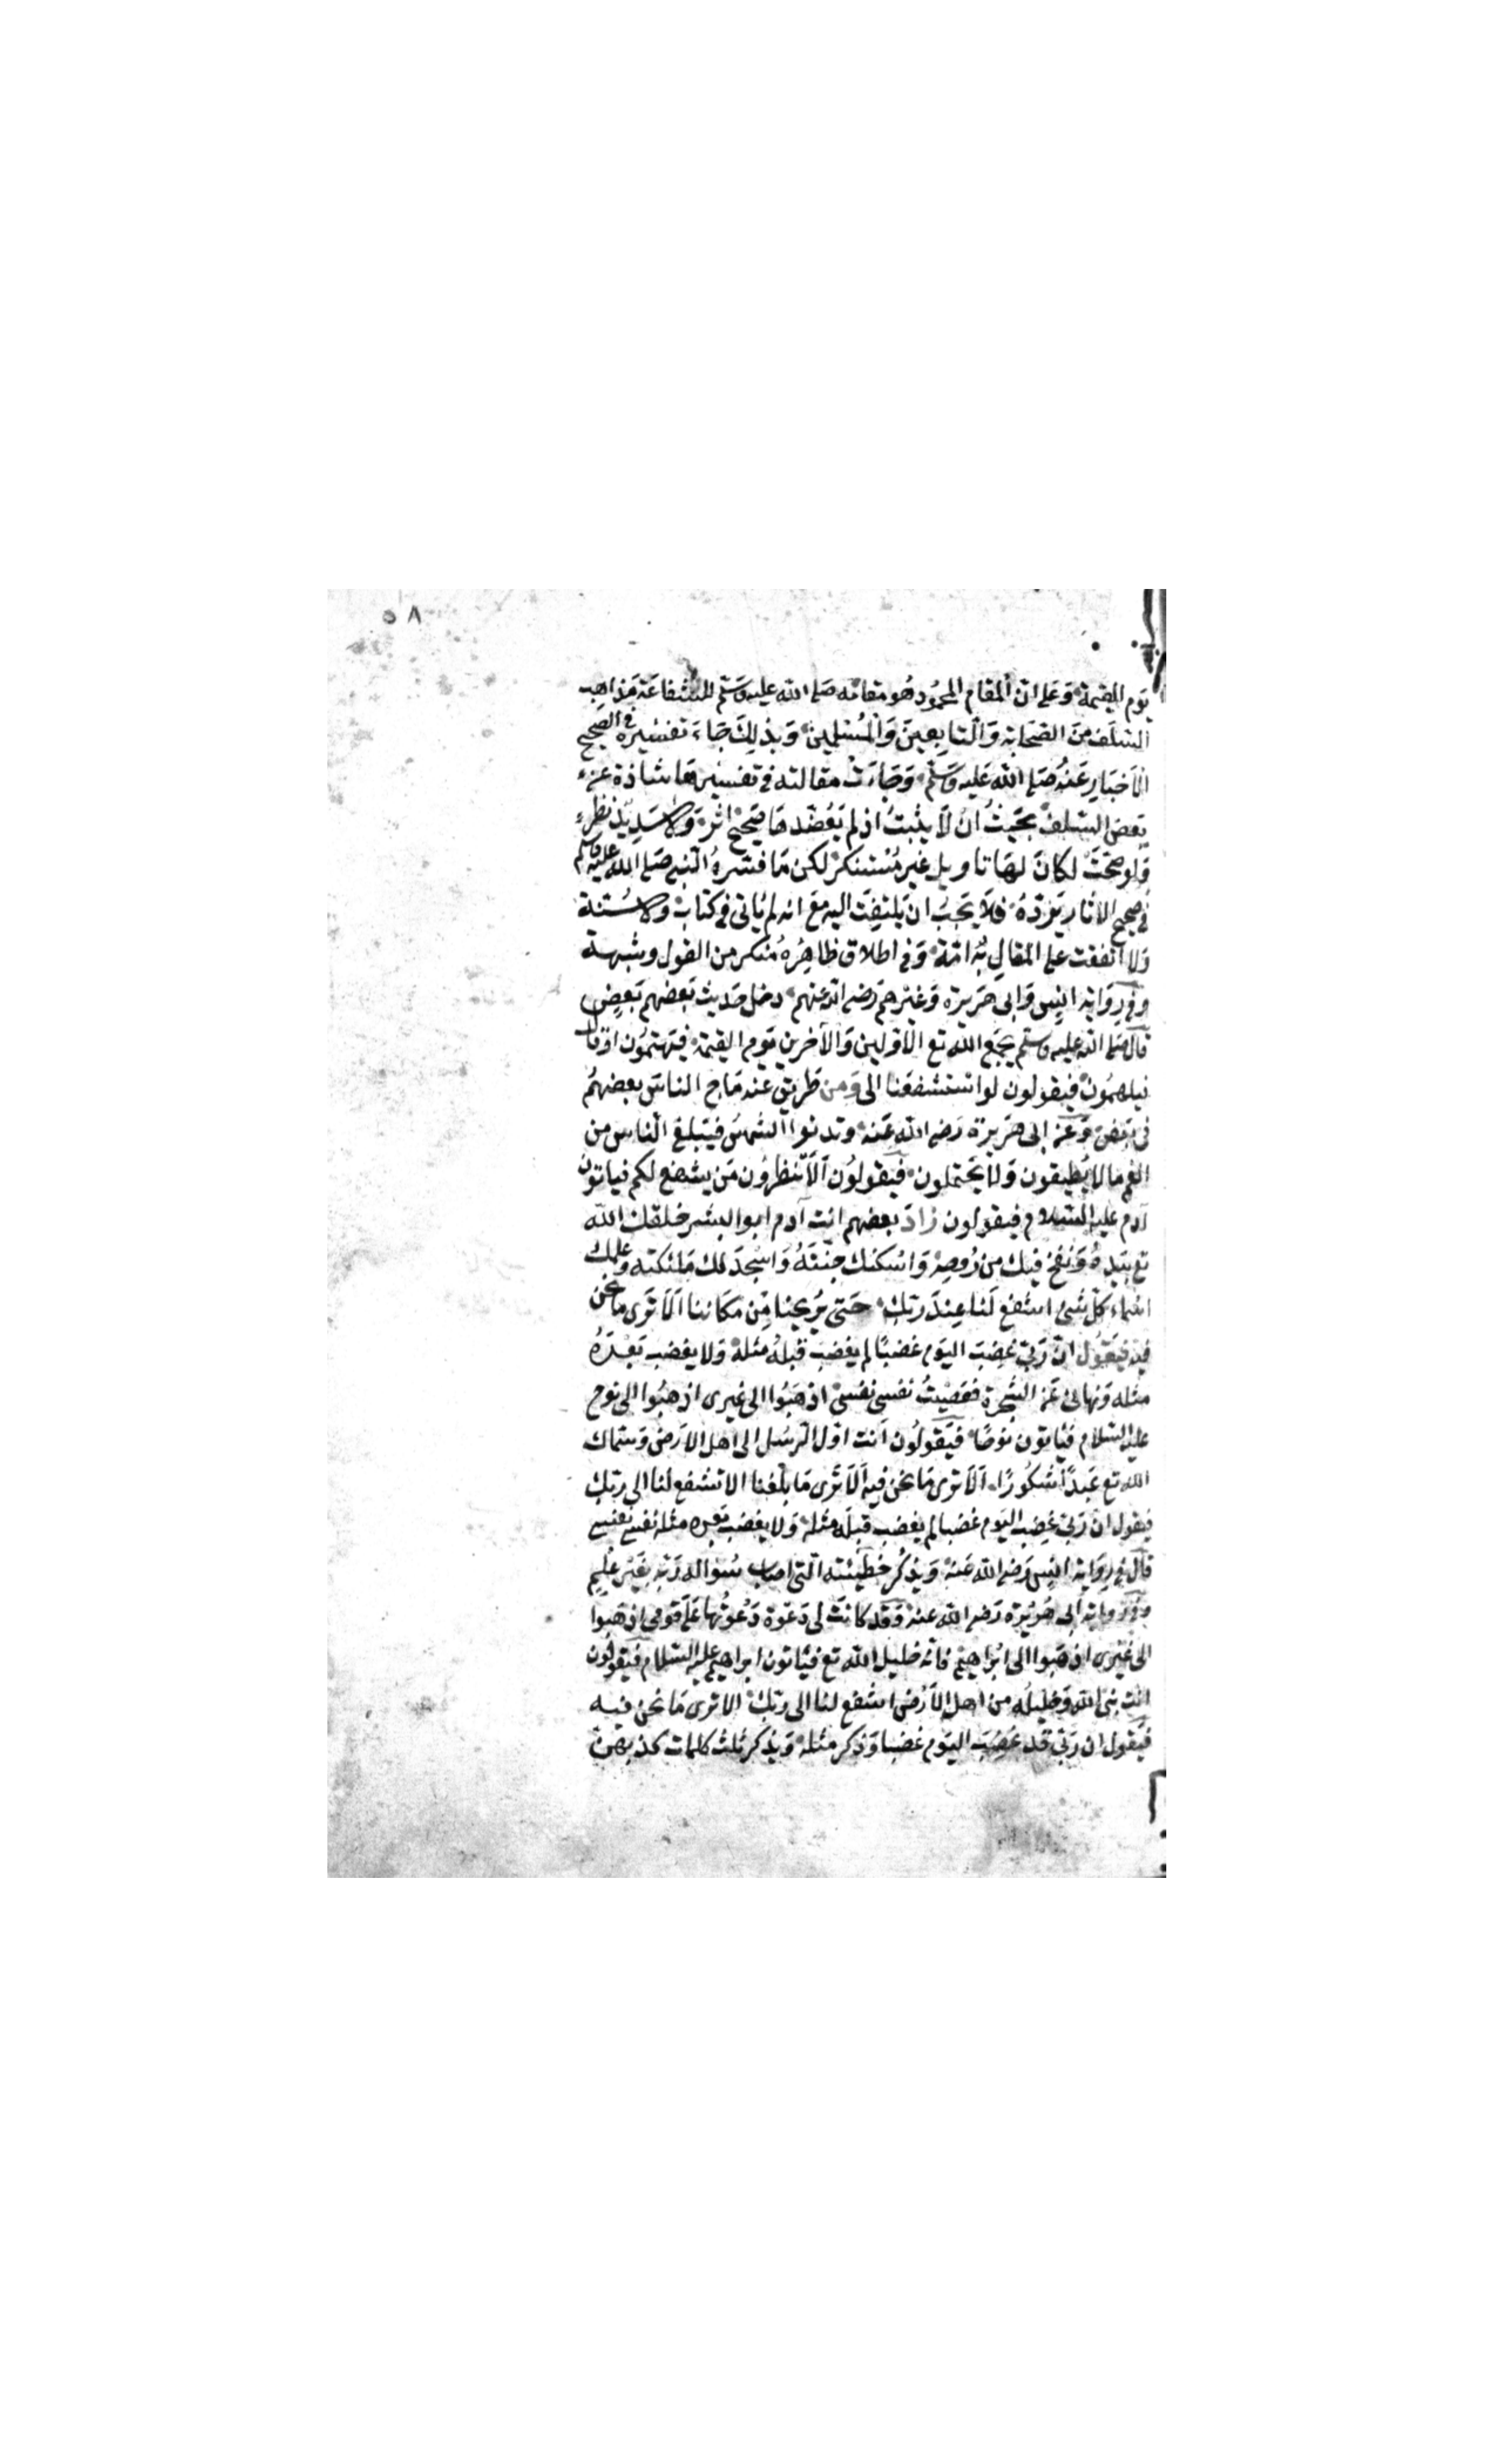 ٥٨
يوم القيمة وعلى ان المقام المحمود هو مقامه صلى الله عليه وسلم للشفاعة مذاهب
السلف من الصحابة والتابعين والمسلمين وبذلك جاءت تفسيره في الصحيح
الاخبار عنه صلى الله عليه وسلم وجاءت مقالته في تفسيرها شاذة عن
بعض السلف بحيث ان لا يثبت اذ لم يعضدها صحيح اثر ولا سديد نظر
ولو صحت لكان لها تاويل غير مستنكر لكن ما فسره النبي صلى الله عليه وسلم
في صحيح الاثار يرده فلا يجب ان يلتفت اليه مع انه لم ياتي في كتاب ولا سنة
ولا اتفقت على المقال به امة وفي اطلاق ظاهره منكر من القول وشبهة
وفي رواية انس وابي هريرة وغيرهم رضي الله عنهم دخل حديث بعضهم بعض
قال صلى الله عليه وسلم يجمع الله تع الاولين والآخرين يوم القيمة فيهتمون او قال
فيلهمون فيقولون لو استشفعنا الى ومن طريق عنه ماج الناس بعضهم
في بعض وعن ابي هريرة رضي الله عنه وتدنوا الشمس فيبلغ الناس من
الغم ما لا يطيقون ولا يحتملون فيقولون ألا تنظرون من يشفع لكم فياتون
آدم عليه السلام فيقولون زاد بعضهم انت آدم ابو البشر خلقك الله
تع بيده ونفخ فيك من روحه واسكنك جنته واسجد لك ملئكته وعلمك
اسماء كل شئ اشفع لنا عند ربك حتى يريحنا من مكاننا ألا ترى ما نحن
فيه فيقول ان ربي غضب اليوم غضبا لم يغضب قبله مثله ولا يغضب بعده
مثله ونهاني عن الشجرة فعصيت نفسي نفسي اذهبوا الى غيري اذهبوا الى نوح
عليه السلام فياتون نوحا فيقولون انت اول الرسل الى اهل الارض وسماك
الله تع عبدا شكورا ألا ترى ما نحن فيه ألا ترى ما بلغنا الا تشفع لنا الى ربك
فيقول ان ربي غضب اليوم غضبا لم يغضب قبله مثله ولا يغضب بعده مثله نفسي نفسي
قال في رواية انس رضي الله عنه ويذكر خطيئته التي اصاب سؤاله ربه بغير علم
وفي رواية ابي هريرة رضي الله عنه وقد كانت لي دعوة دعوتها على قومي اذهبوا
الى غيري اذهبوا الى ابراهيم فانه خليل الله تع فياتون ابراهيم عليه السلام فيقولون
انت نبي الله وخليله من اهل الارض اشفع لنا الى ربك الا ترى ما نحن فيه
فيقول ان ربي قد غضب اليوم غضبا وذكر مثله ويذكر ثلث كلمات كذبهن